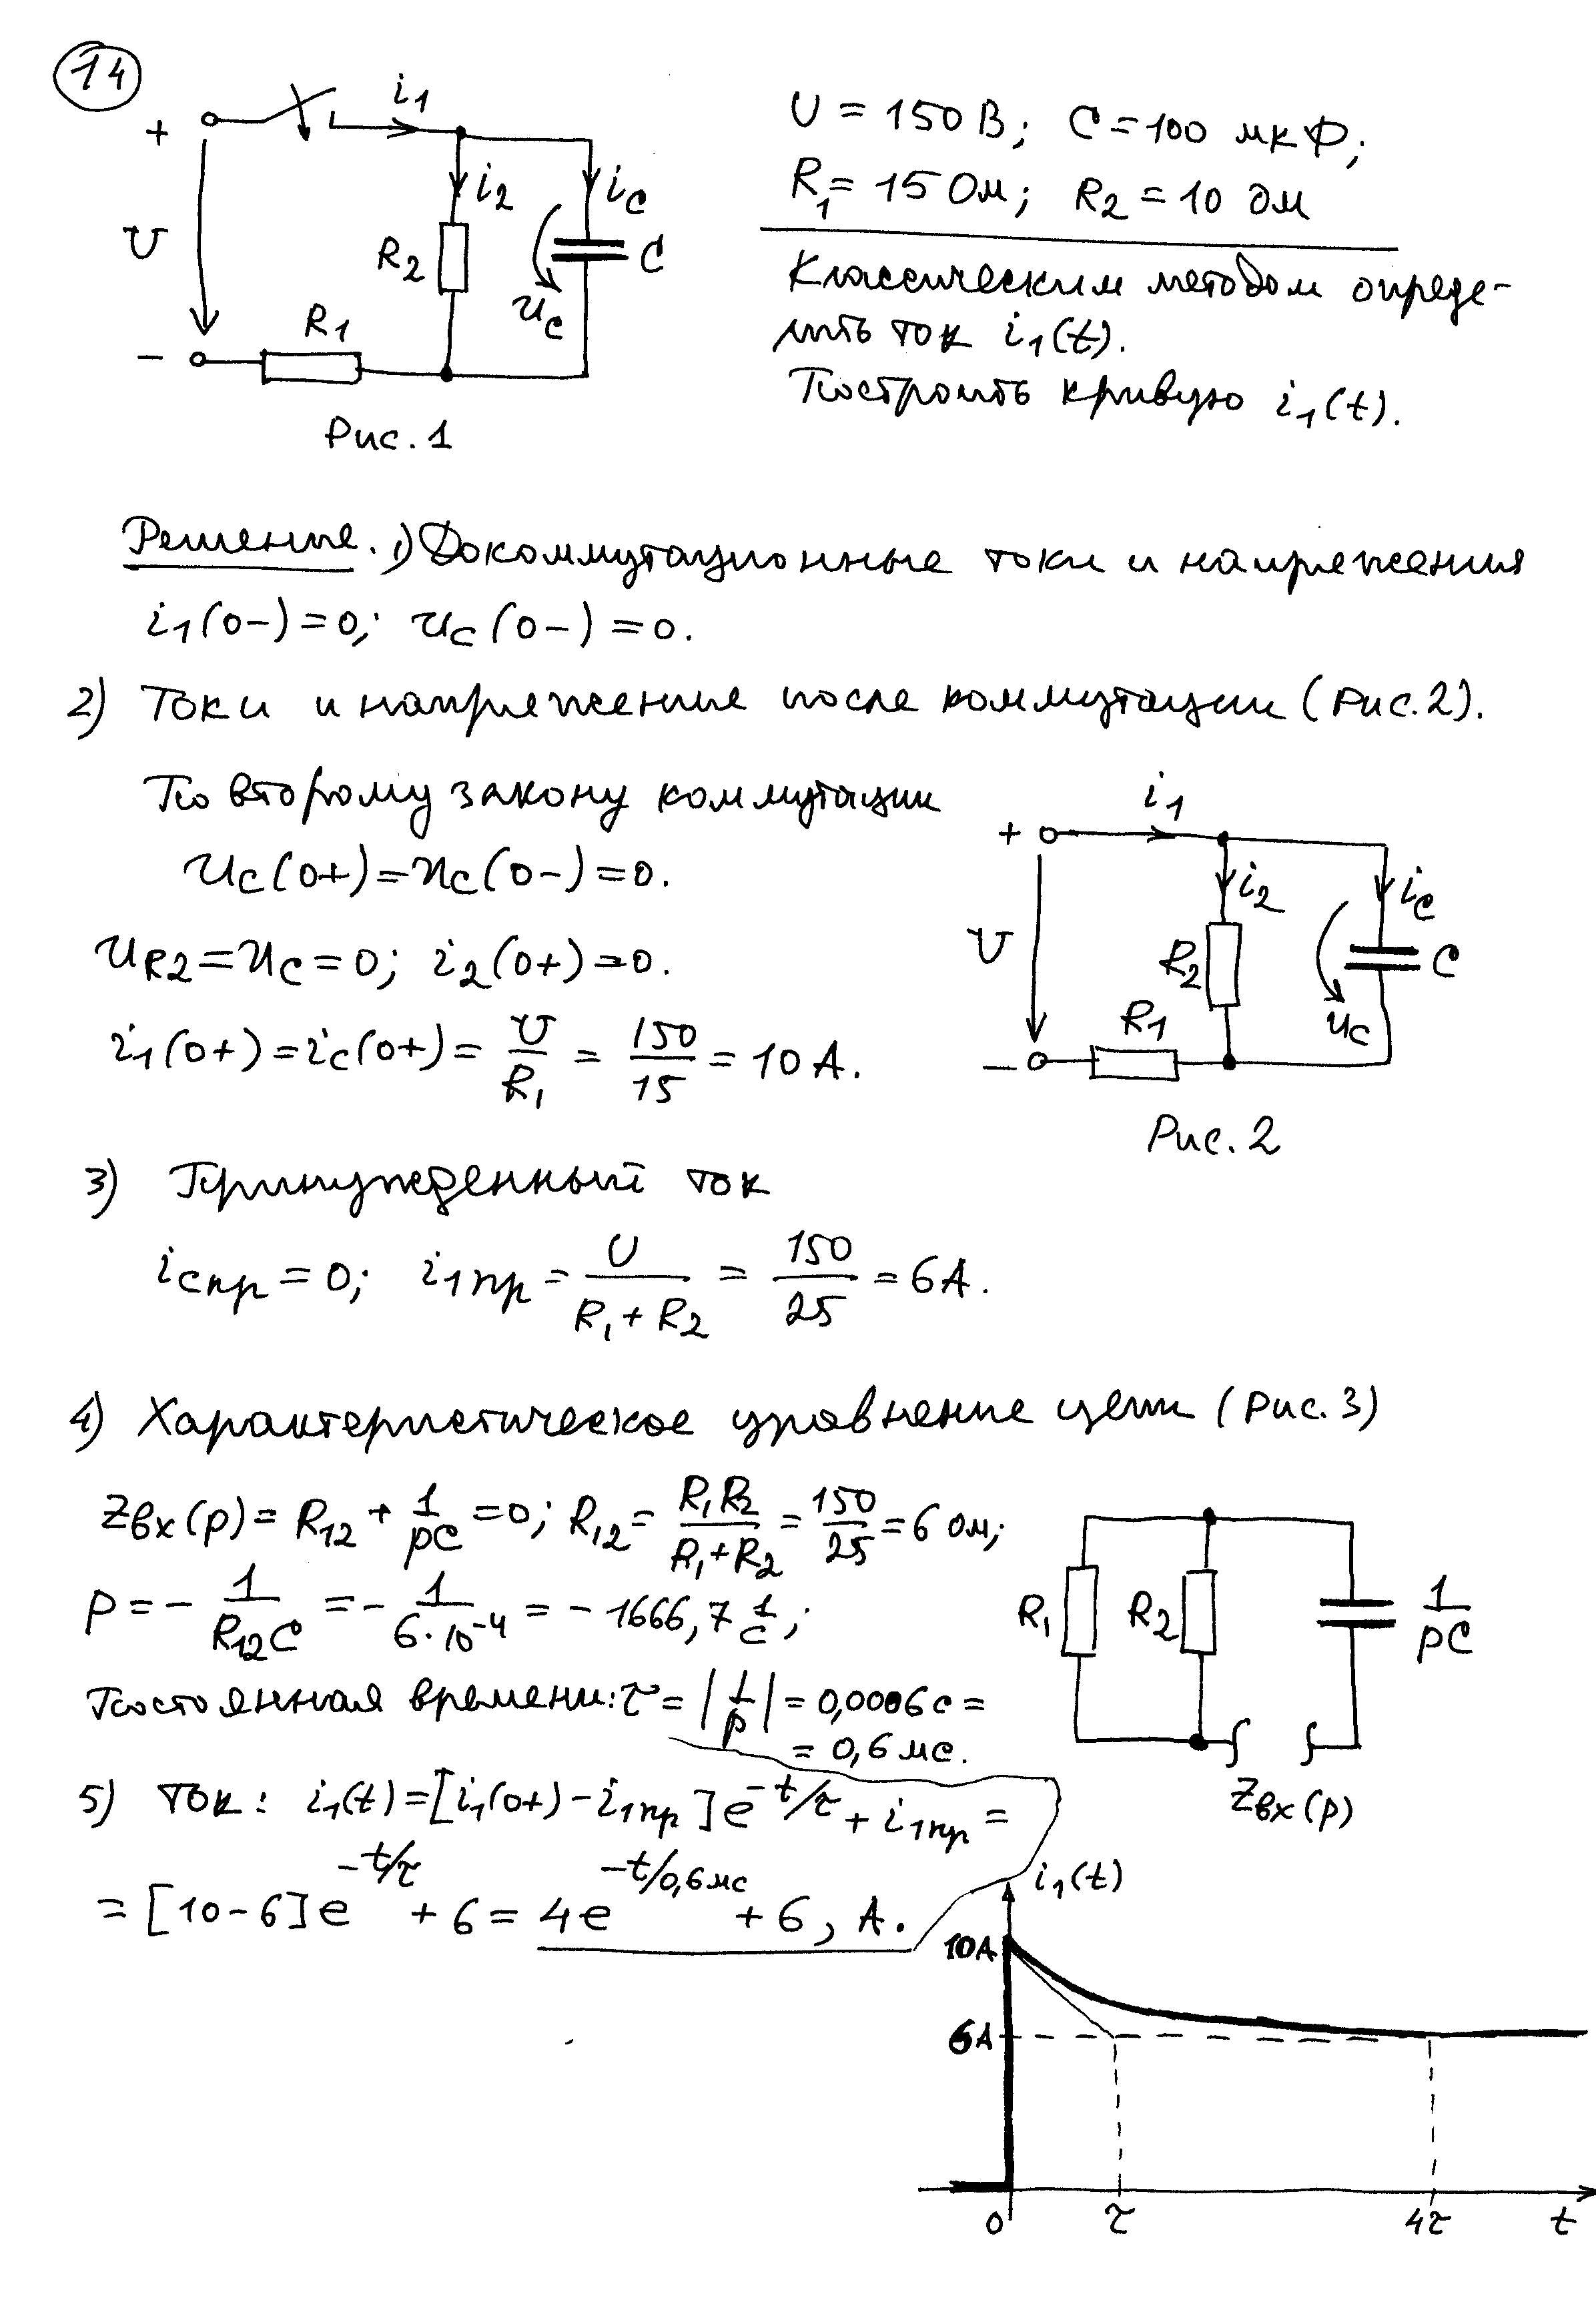 14
i1
+
i2
ic
U
R2
C
uc
R1
−
Рис. 1
U = 150 В; C = 100 мкФ;
R1 = 15 Ом; R2 = 10 Ом
Классическим методом опреде-
лить ток i1(t).
Построить кривую i1(t).
Решение. 1) Докоммутационные токи и напряжения
i1(0−) = 0; uc(0−) = 0.
2) Токи и напряжение после коммутации (Рис. 2).
По второму закону коммутации
uc(0+) = uc(0−) = 0.
uR2 = uc = 0; i2(0+) = 0.
i1(0+) = ic(0+) = U/R1 = 150/15 = 10 А.
i1
+
i2
ic
U
R2
C
uc
R1
−
Рис. 2
3) Принужденный ток
ic пр = 0; i1 пр = U/(R1 + R2) = 150/25 = 6 А.
4) Характеристическое уравнение цепи (Рис. 3)
Zвх(p) = R12 + 1/pC = 0; R12 = R1R2/(R1+R2) = 150/25 = 6 Ом;
p = − 1/R12C = − 1/6·10^-4 = −1666,7 1/с;
Постоянная времени: τ = |1/p| = 0,0006 с =
= 0,6 мс.
R1
R2
1/pC
Zвх(p)
5) Ток: i1(t) = [i1(0+) − i1пр] e^−t/τ + i1пр =
= [10−6] e^−t/τ + 6 = 4e^−t/0,6мс + 6, А.
i1(t)
10А
6А
0
τ
4τ
t